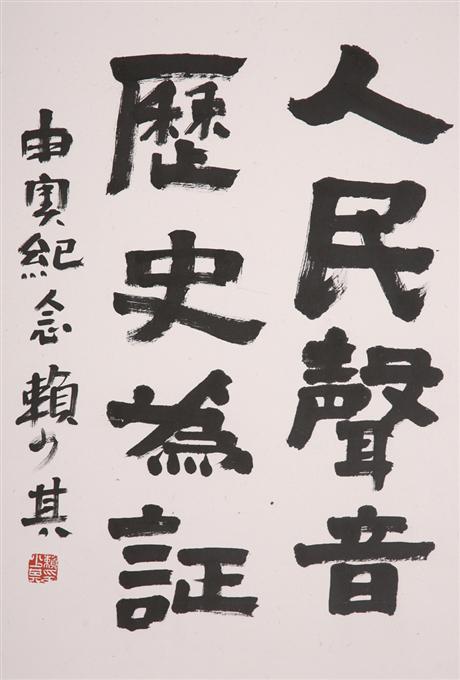 人民聲音
歷史為証
紀念賴少其